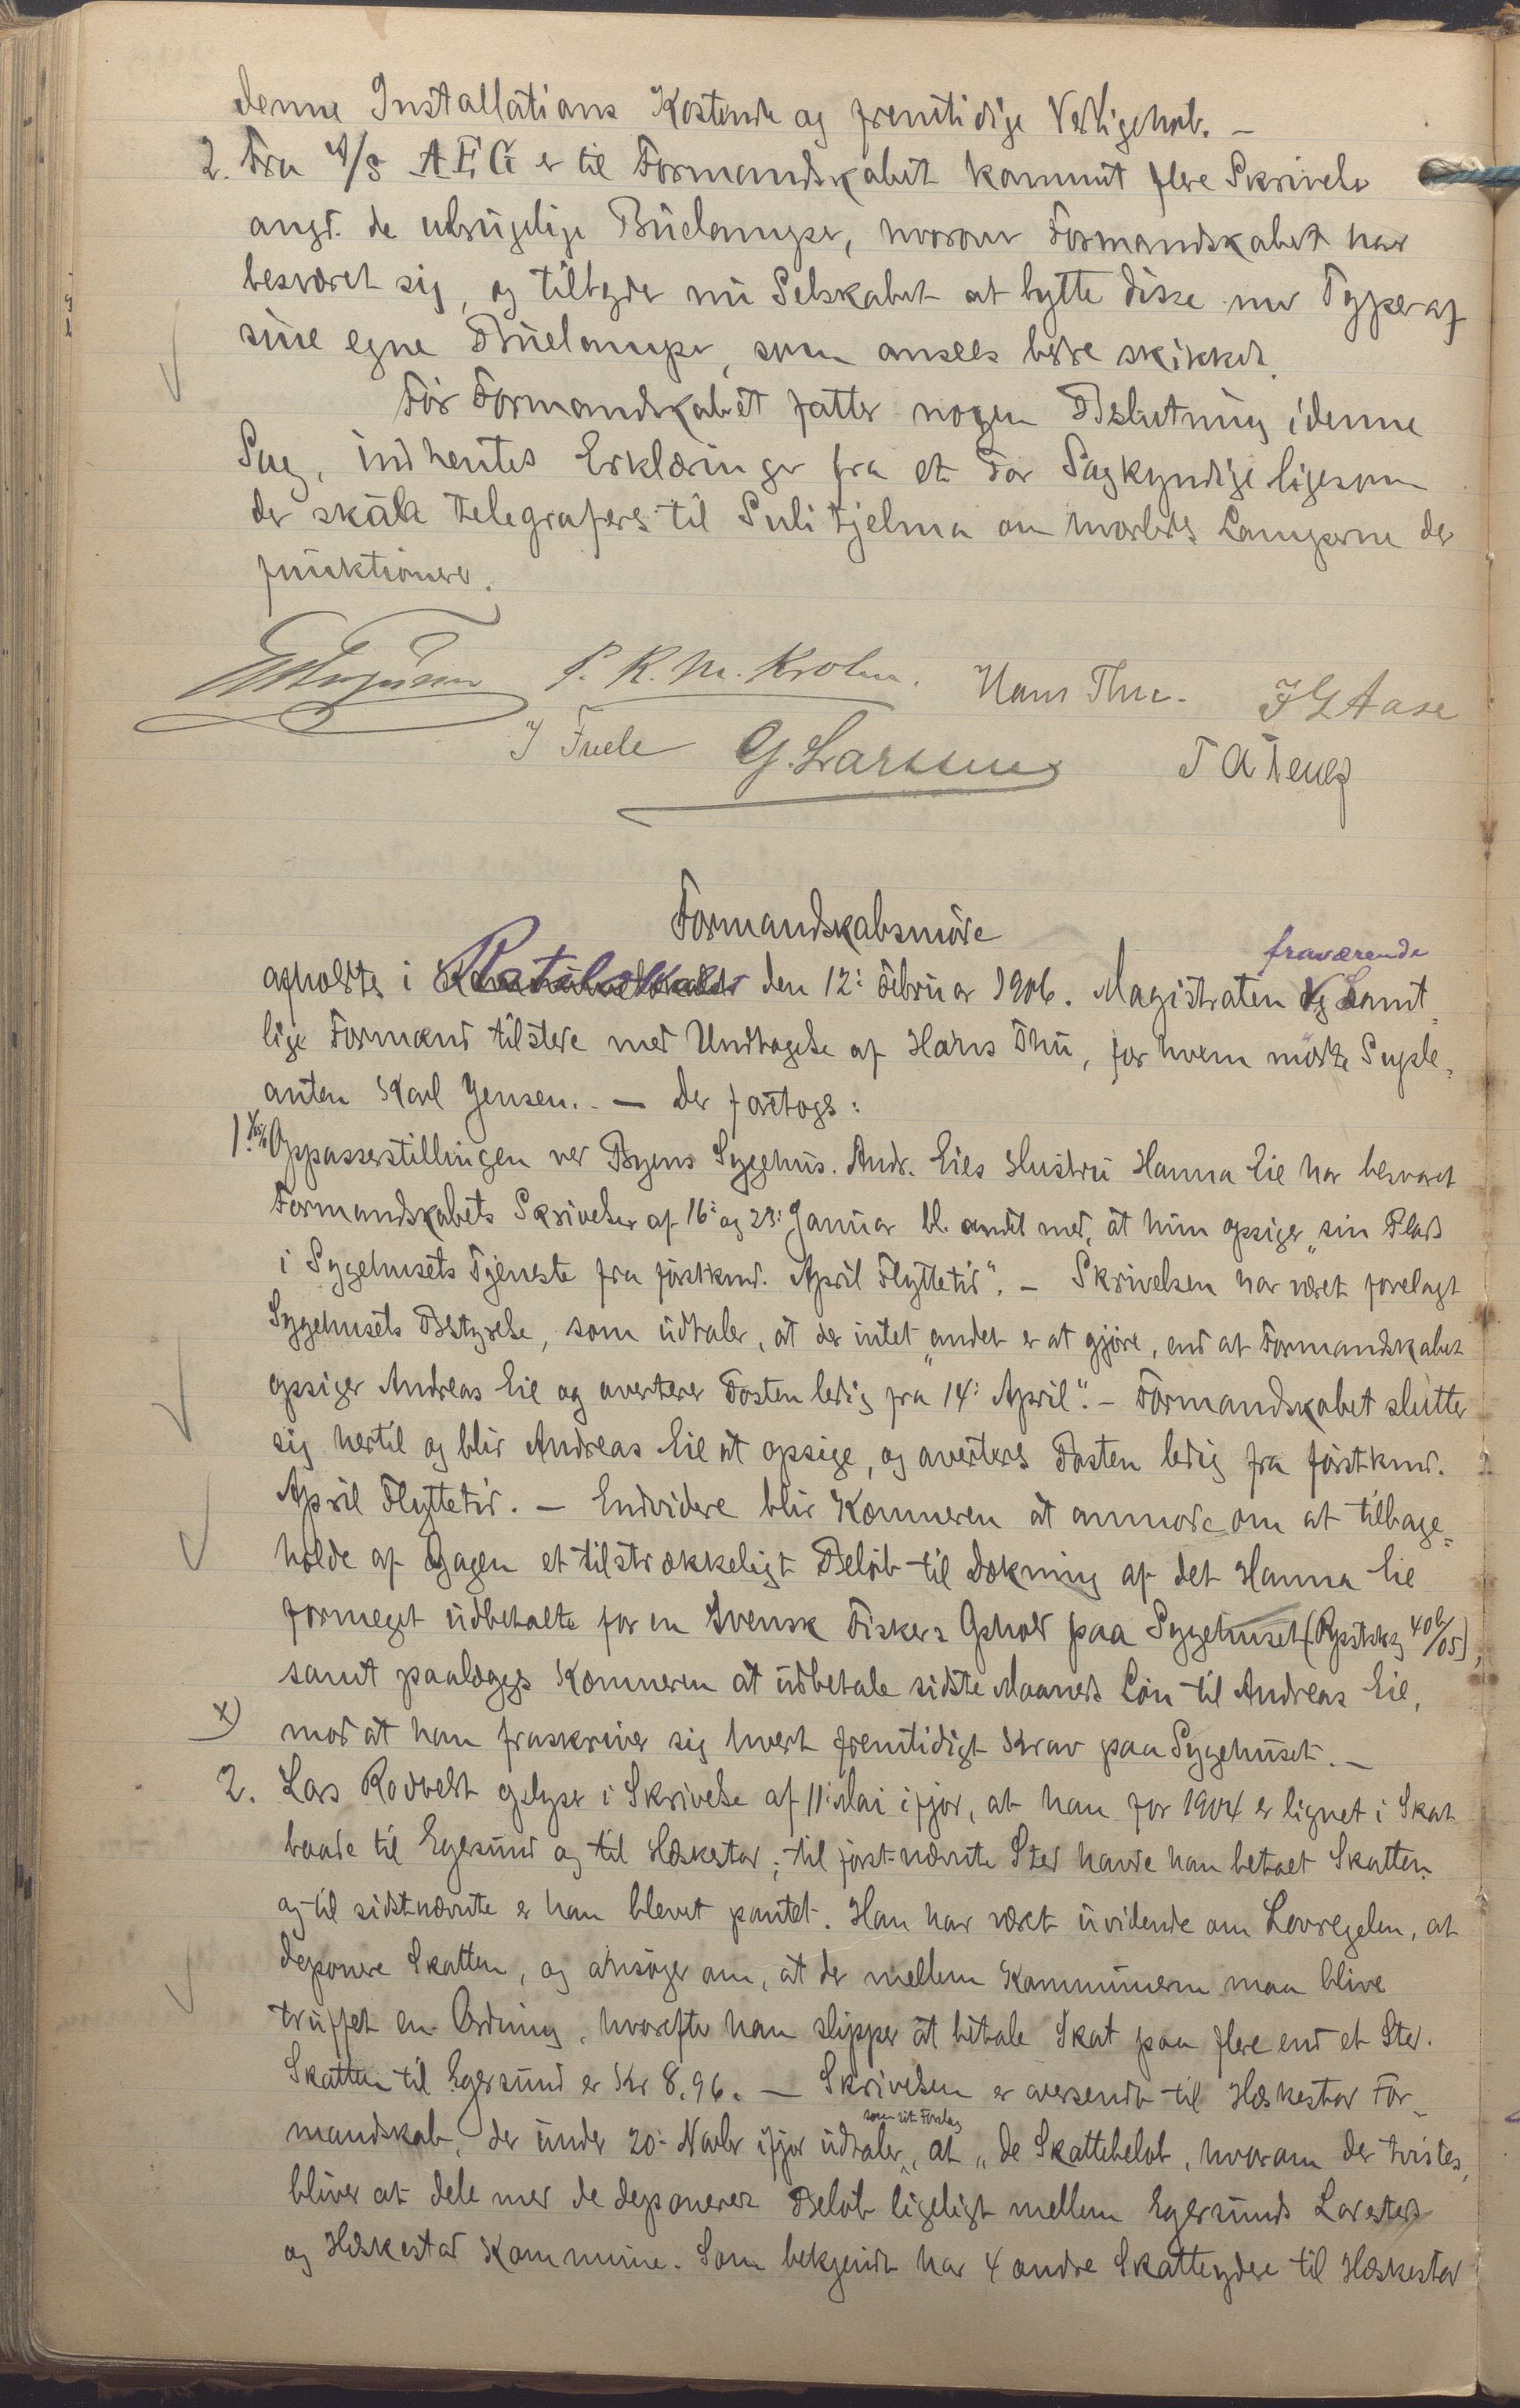 denne Installations Kostende og fremtidige Vedligehold. –
2. Fra A/S AEG er til Formandskabet kommet flere Skrivelser
angd. de ubrugelige Buelamper, hvorover Formandskabet har
besværet sig, og tilbyder nu Selskabet at bytte disse med Typer af
sine egne Buelamper, som ansees bedre skikket.
Før Formandskabet fatter nogen Beslutning i denne
Sag, indhentes Erklæringer fra et Par Sagkyndige ligesom
der skal telegraferes til Sulitjelma om hvorledes Lamperne der
funktionerer.
P. K. M. Krohn. Hans Thu. J G Aase
J Fuele G. Larssen T A Teng
Formandskabsmøde
fraværende
afholdtes i Raadhuslokalet den 12: Februar 1906. Magistraten og Samt-
lige Formænd tilstede med Undtagelse af Hans Thu, for hvem mødte Suple-
anten Karl Jensen. – Der foretoges:
1. Oppasserstillingen ved Byens Sygehus. Andr. Eies Hustru Hanna Eie har besvaret
Formandskabets Skrivelser af 16: og 23: Januar bl. andet med, at hun opsiger „sin Plads
i Sygehusets Tjeneste fra førstkmd. April Flyttetid". – Skrivelsen har været forelagt
Sygehusets Bestyrelse, som udtaler, at der intet „andet er at gjøre, end at Formandskabet
opsiger Andreas Eie og averterer Posten ledig fra 14: April". – Formandskabet slutter
sig hertil og blir Andreas Eie at opsige, og averteres Posten ledig fra førstkmd.
April Flyttetid. – Endvidere blir Kæmneren at anmode om at tilbage-
holde af Gagen et tilstrækkeligt Beløb til Dækning af det Hanna Eie
formeget udbetalte for en Svensk Fiskers Ophold paa Sygehuset (Kpstkkg 406/05),
samt paalægges Kæmneren at udbetale sidste Maaneds Løn til Andreas Eie,
x) mod at han fraskriver sig hvert fremtidigt Krav paa Sygehuset. –
2. Lars Rodvelt oplyser i Skrivelse af 11: Mai ifjor, at han for 1904 er lignet i Skat
baade til Egersund og til Heskestad; til først-nævnte Sted havde han betaet Skatten
og til sidstnævnte er han blevet pantet. Han har været uvidende om Lovregelen, at
deponere Skatten, og ansøger om, at der mellem Kommunerne maa blive
truffet en Ordning, hvorefter han slipper at betale Skat paa flere end et Sted.
Skatten til Egersund er Kr 8,96. – Skrivelsen er oversendt til Heskestad For-
som sit Forslag
mandskab, der under 20: Novbr ifjor udtaler, at „de Skattebeløb, hvorom der tvistes,
bliver at dele med de deponerer Beløb ligeligt mellem Egersunds Ladested
og Heskestad Kommune. Som bekjendt har 4 andre Skatteydere til Heskestad